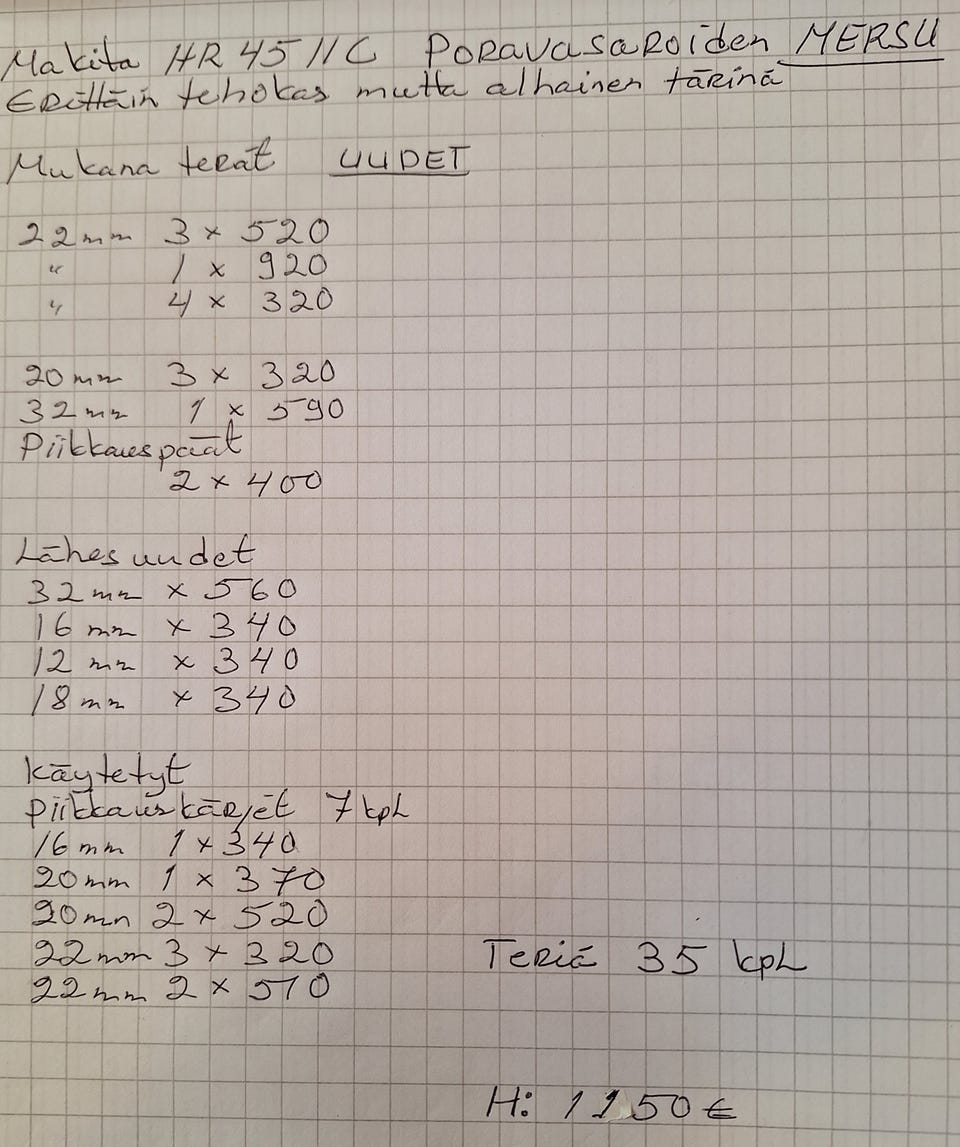 Makita HR 4511C PORAVASAROIDEN MERSU
ERITTÄIN tehokas mutta alhainen tärinä
Mukana terät UUDET
22mm 3 x 520
" 1 x 920
" 4 x 320
20mm 3 x 320
32mm 1 x 590
Piikkauspäät
2 x 400
Lähes uudet
32mm x 560
16mm x 340
12mm x 340
18mm x 340
Käytetyt
Piikkauskärjet 7kpl
16mm 1 x 340
20mm 1 x 370
20mm 2 x 520
22mm 3 x 320
22mm 2 x 570
Teriä 35 kpl
H: 1150€